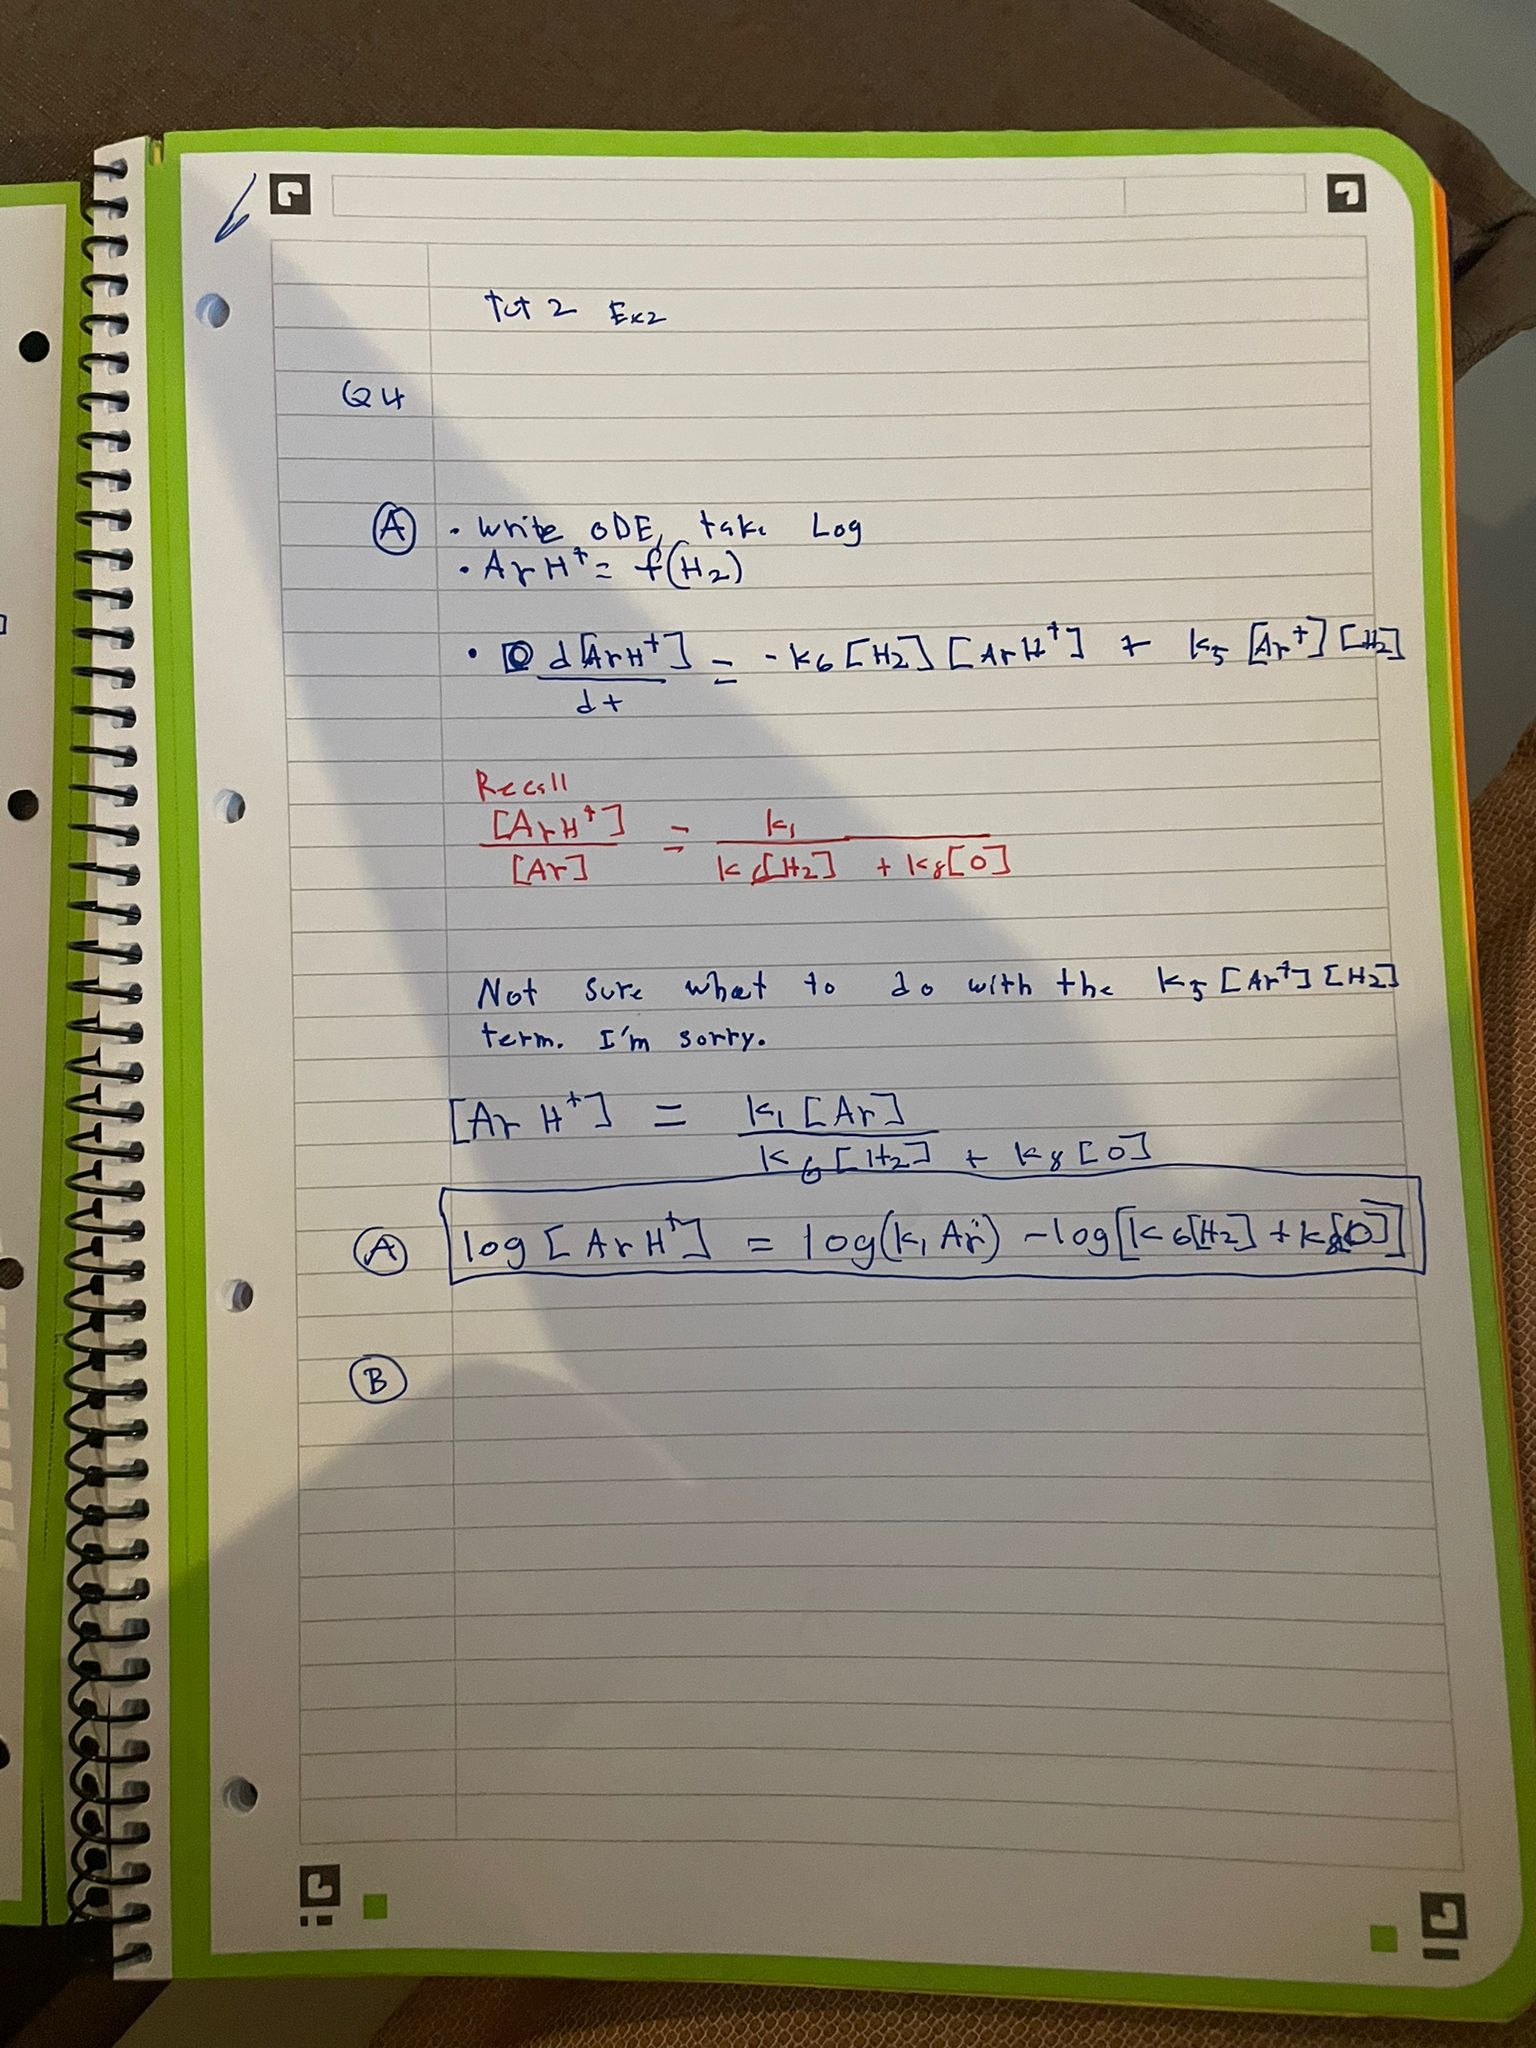 Tut 2 Ex2
Q4
A • Write ODE, take Log
• ArH⁺ = f(H₂)
• d[ArH⁺]/dt = -k₆[H₂][ArH⁺] + k₅[Ar⁺][H₂]
Recall
[ArH⁺]/[Ar] = k₁/(k₆[H₂] + k₈[O])
Not sure what to do with the k₅[Ar⁺][H₂]
term. I'm sorry.
[ArH⁺] = k₁[Ar]/(k₆[H₂] + k₈[O])
A log[ArH⁺] = log(k₁Ar) - log[k₆[H₂] + k₈[O]]
B